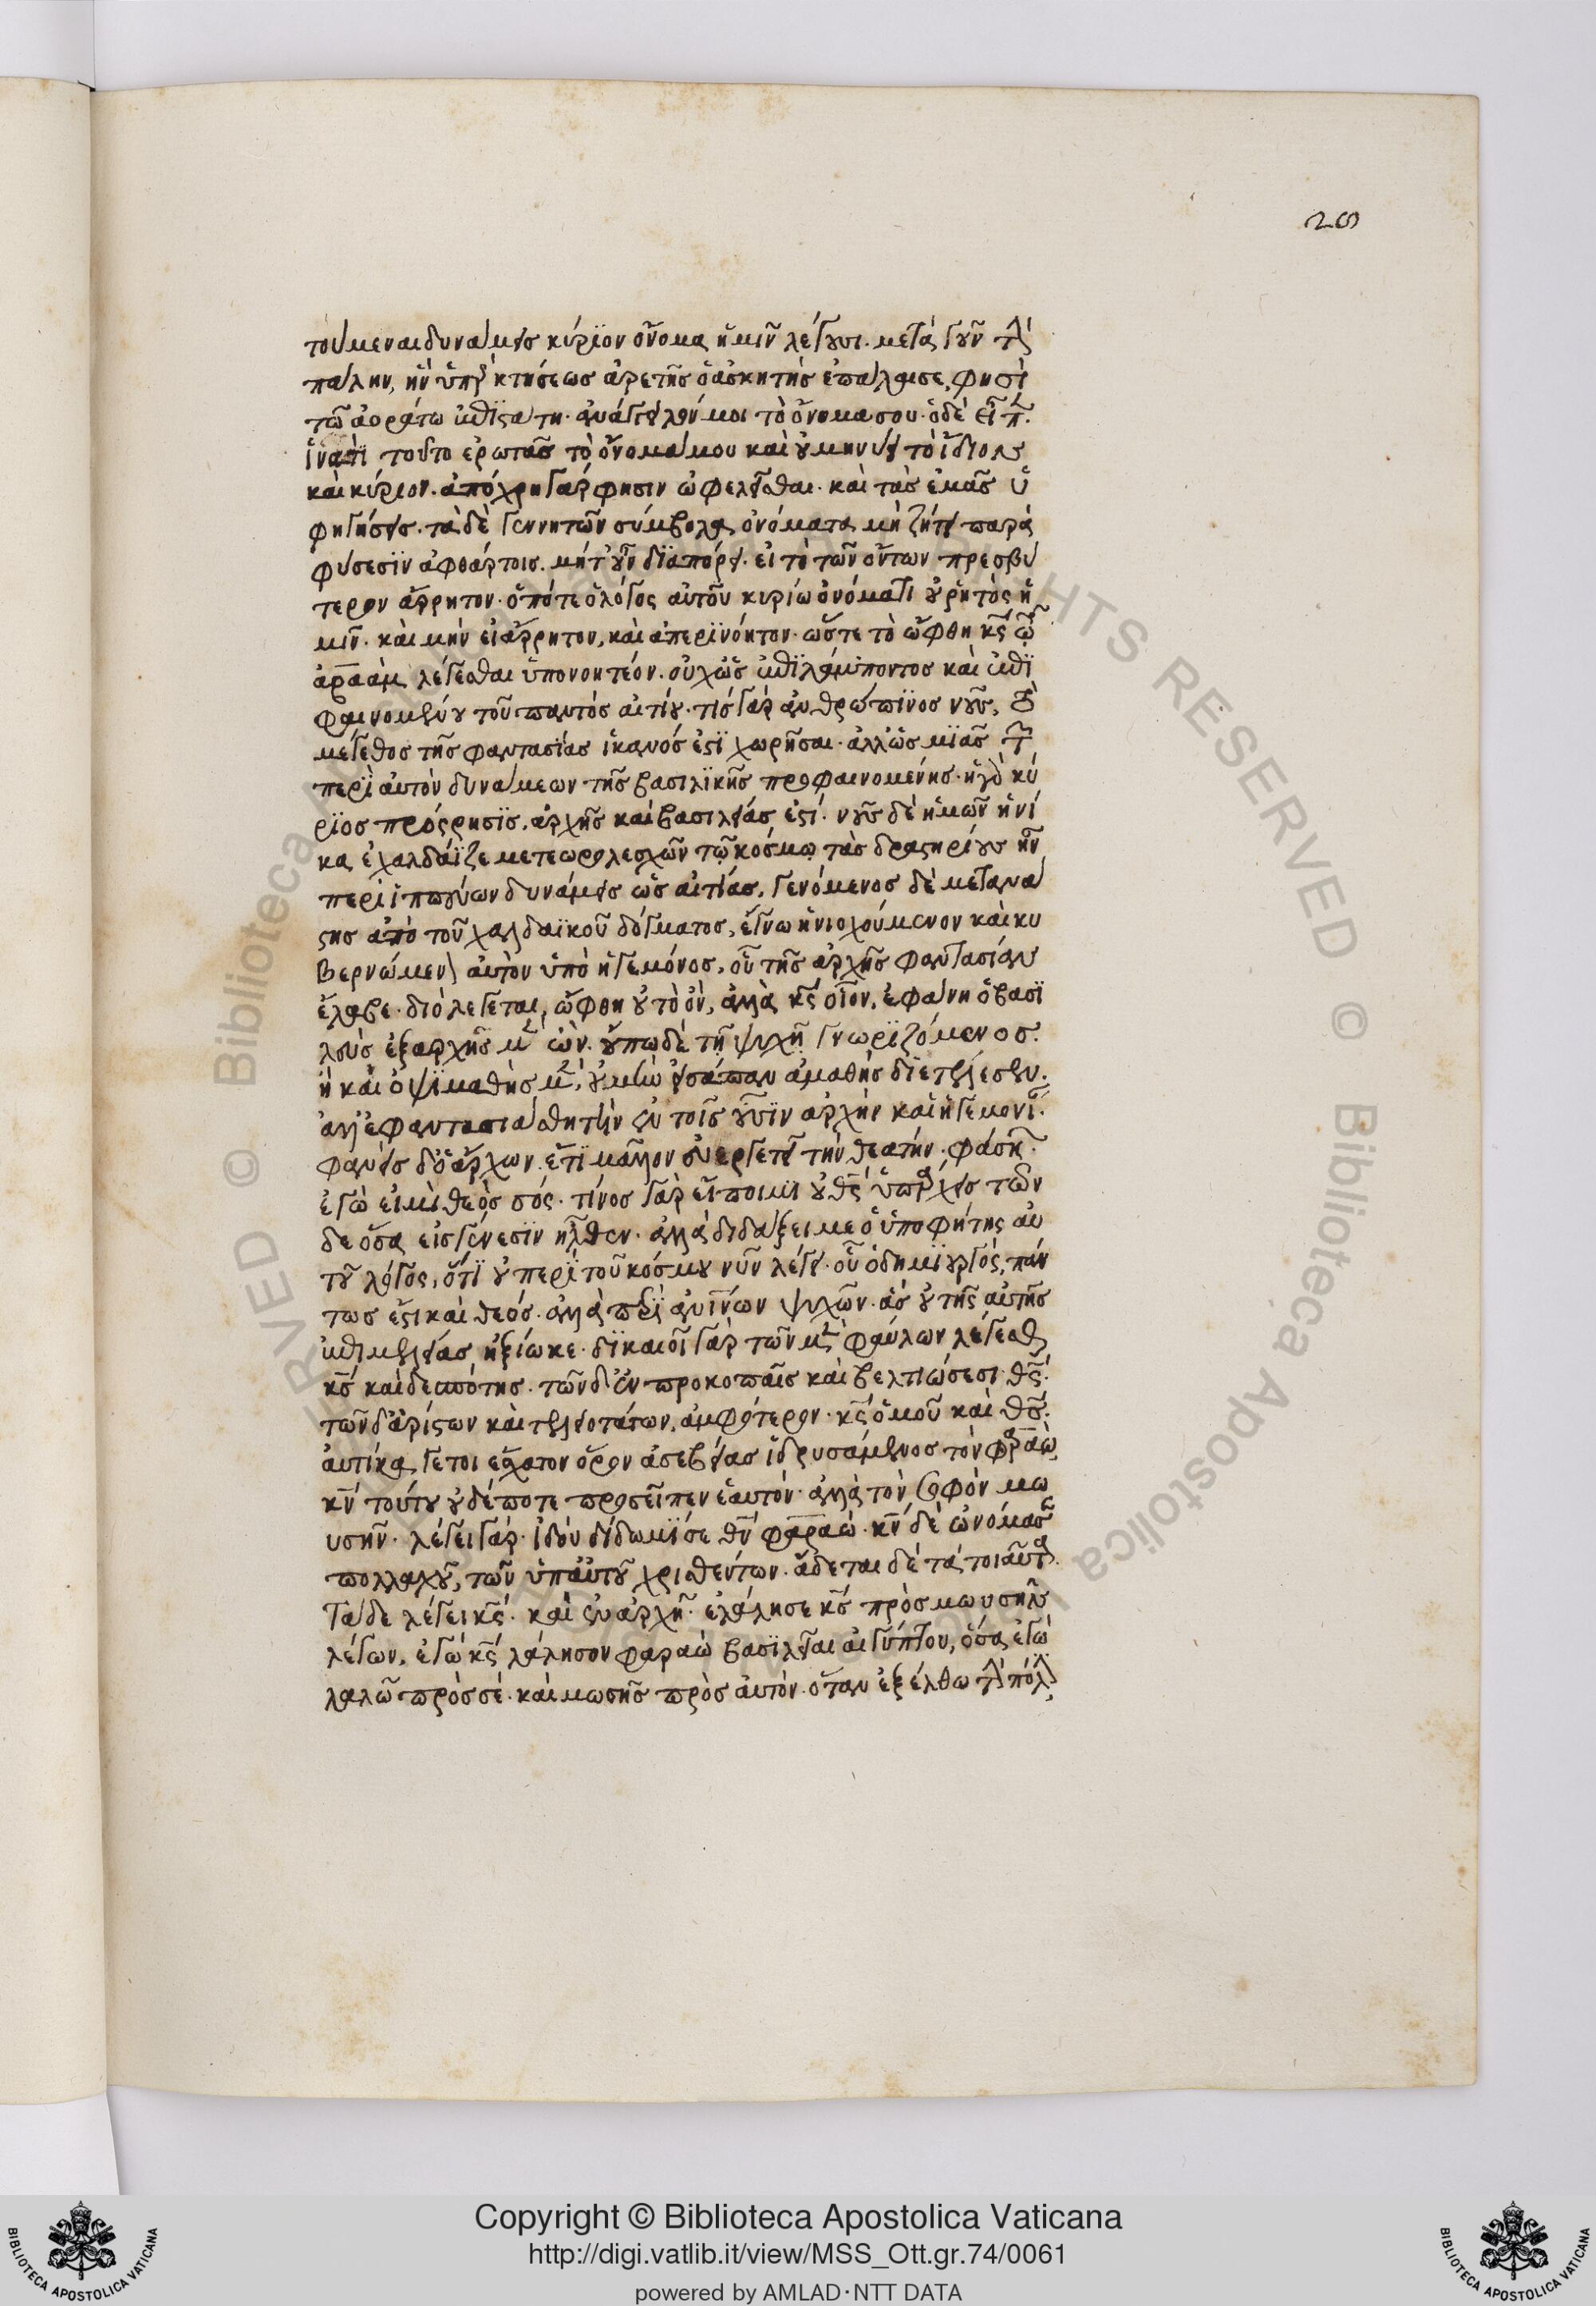 26
τούμεναι δυνάμεις κύριον ὄνομα ἡμῖν λέγουσι. μετὰ γοῦν τὴν
πάλην, ἣν ὑπὲρ κτήσεως ἀρετῆς ὁ ἀσκητὴς ἐπάλαισε, φησὶ
τῶ ἀοράτω ἐπιστάτη. ἀνάγγειλόν μοι τὸ ὄνομα σου. ὁ δὲ εἶπεν.
ἵνα τί τοῦτο ἐρωτᾶς τὸ ὄνομά μου καὶ οὐ μηνύει τὸ ἴδιον
καὶ κύριον. ἀπόχρη γάρ φησιν ὠφελεῖσθαι. καὶ τὰς ἐμᾶς ὑ
φηγήσεις. τὰ δὲ γεννητῶν σύμβολα ὀνόματα μὴ ζήτει παρὰ
φύσεσιν ἀφθάρτοις. μήτ' οὖν διαπόρει. εἰ τὸ τῶν ὄντων πρεσβύ
τερον ἄρρητον. ὁπότε ὁ λόγος αὐτοῦ κυρίω ὀνόματι οὐ ῥητὸς ἡ
μῖν. καὶ μὴν εἰ ἄρρητον, καὶ ἀπερινόητον. ὥστε τὸ ὤφθη κς τῶ
ἀβραὰμ λέγεσθαι ὑπονοητέον. οὐχ ὡς ἐπιλάμποντος καὶ ἐπι
φαινομένου τοῦ παντὸς αἰτίου. τίς γὰρ ἀνθρώπινος νοῦς, τὸ
μέγεθος τῆς φαντασίας ἱκανός ἐστι χωρῆσαι. ἀλλ' ὡς μιᾶς τῶν
περὶ αὐτὸν δυνάμεων τῆς βασιλικῆς προφαινομένης. ἡ γὰρ κύ
ριος πρόςρησις, ἀρχῆς καὶ βασιλείας ἐστί. νοῦς δὲ ἡμῶν ἡνί
κα ἐχαλδάϊζε μετεωρολεσχῶν τῷ κόσμῳ τὰς δραστηρίους ἦν
περιϊπων δυνάμεις ὡς αἰτίας. γενόμενος δὲ μετανά
στης ἀπὸ τοῦ χαλδαϊκοῦ δόγματος, ἔγνω ἡνιοχούμενον καὶ κυ
βερνώμενον αὐτὸν ὑπὸ ἡγεμόνος, οὗ τῆς ἀρχῆς φαντασίαν
ἔλαβε. διὸ λέγεται, ὤφθη οὐ τὸ ὄν, ἀλλὰ κς οἷον, ἐφάνη ὁ βασι
λεὺς ἐξ ἀρχῆς μὲν ὢν. οὔπω δὲ τῇ ψυχῇ γνωριζόμενος.
ἣ καὶ ὀψιμαθὴς μέν, οὐ μὴν εἰσάπαν ἀμαθὴς διετέλεσεν.
ἀλλ' ἐφαντασιάσθη τὴν ἐν τοῖς οὖσιν ἀρχὴν καὶ ἡγεμονίαν.
φανεὶς δ' ὁ ἄρχων. ἔτι μᾶλλον εὐεργετεῖ τὴν θεατήν. φάσκων.
ἐγὼ εἰμὶ θεὸς σός. τίνος γὰρ εἴποιμι οὐ θς ὑπάρχεις τῶν
δε ὅσα εἰς γένεσιν ἦλθεν. ἀλλὰ διδάξει με ὁ ὑποφήτης αὐ
τοῦ λόγος, ὅτι οὐ περὶ τοῦ κόσμου νῦν λέγει. οὗ ὁ δημιουργός, πάν
τως ἐστι καὶ θεός. ἀλλὰ περὶ ἀνθρωπίνων ψυχῶν. ἃς οὐ τῆς αὐτῆς
ἐπιμελείας ἠξίωκε. δικαιοῖ γὰρ τῶν μὲν φαύλων λέγεσθαι
κς καὶ δεσπότης. τῶν δ' ἐν προκοπαῖς καὶ βελτιώσεσι θς.
τῶν δ' ἀρίστων καὶ τελειοτάτων, ἀμφότερον. κς ὁμοῦ καὶ θς.
αὐτίκα γέτοι ἔσχατον ὅρον ἀσεβείας ἱδρυσάμενος τὸν φαραώ,
κν τούτου οὐδέποτε προσεῖπεν ἑαυτόν. ἀλλὰ τὸν σοφὸν μω
υσῆν. λέγει γάρ. ἰδοὺ δίδωμί σε θν φαραώ. κν δὲ ὠνόμασεν
πολλαχοῦ, τῶν ὑπ' αὐτοῦ χρισθέντων. ἄδεται δὲ τὰ τοιαῦτα.
Τάδε λέγει κς. καὶ ἐν ἀρχῆ. ἐλάλησε κς πρὸς μωυσῆν
λέγων. ἐγώ κς λάλησον φαραὼ βασιλεῖ αἰγύπτου, ὅσα ἐγὼ
λαλῶ πρὸς σέ. καὶ μωσῆς πρὸς αὐτόν. ὅταν ἐξέλθω τὴν πόλιν,
Copyright © Biblioteca Apostolica Vaticana
http://digi.vatlib.it/view/MSS_Ott.gr.74/0061
powered by AMLAD·NTT DATA
BIBLIOTECA APOSTOLICA VATICANA
BIBLIOTECA APOSTOLICA VATICANA